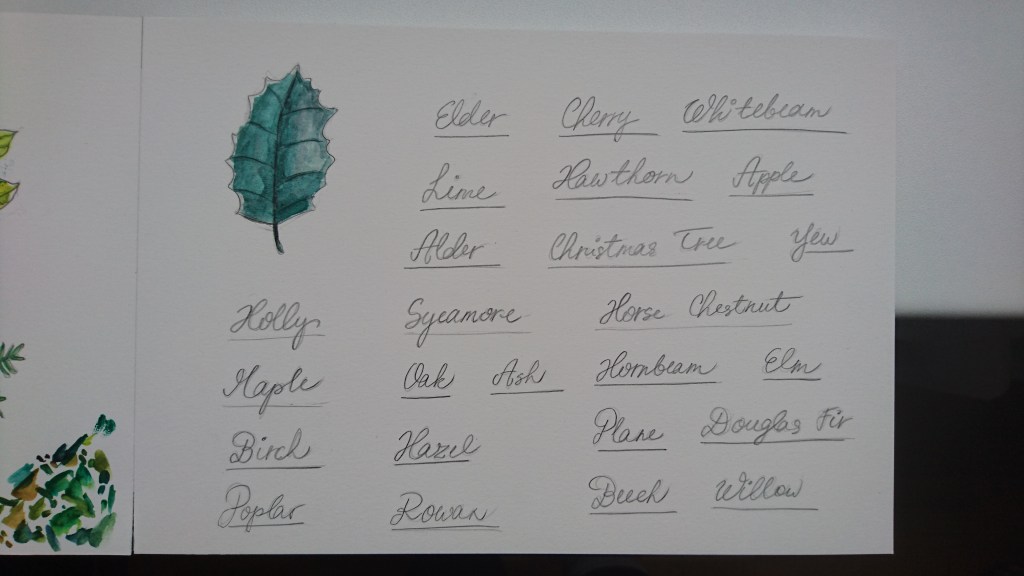 Elder Cherry Whitebeam
Lime Hawthorn Apple
Alder Christmas Tree Yew
Holly Sycamore Horse Chestnut
Maple Oak Ash Hornbeam Elm
Birch Hazel Plane Douglas Fir
Poplar Rowan Beech Willow